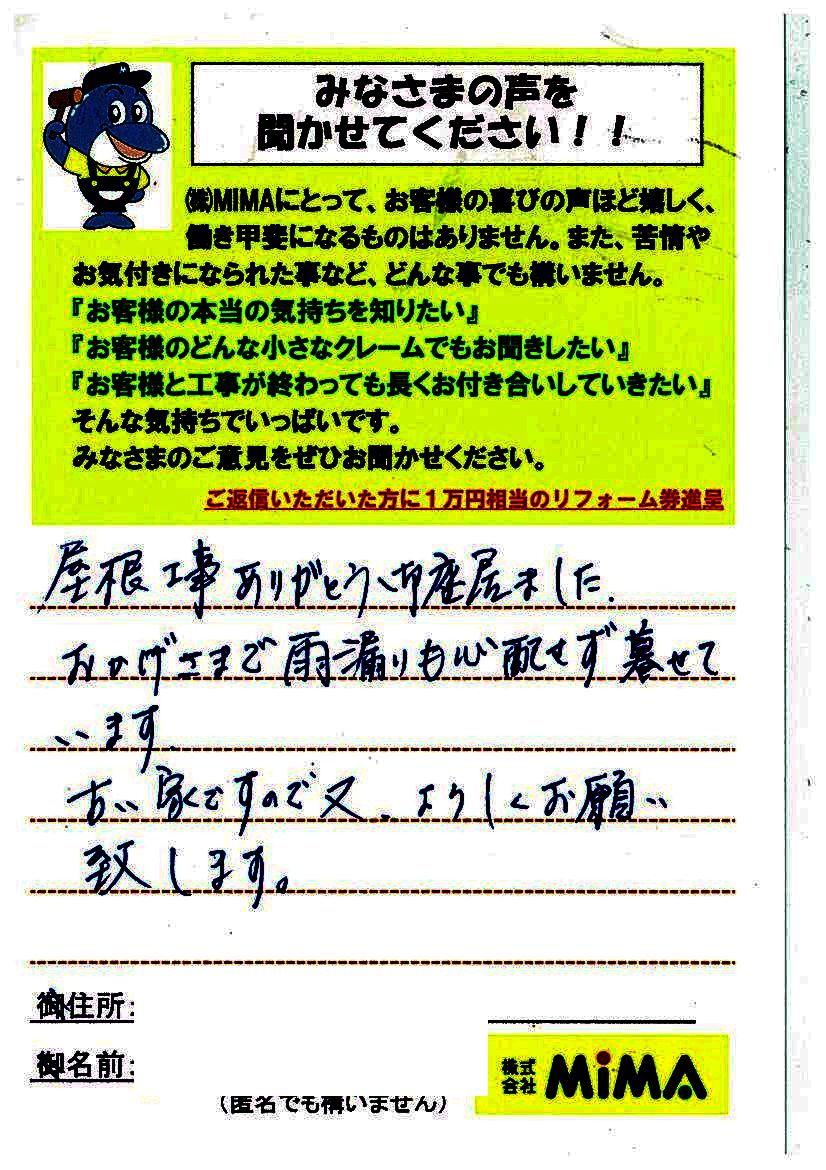 みなさまの声を
聞かせてください！！
㈱MIMAにとって、お客様の喜びの声ほど嬉しく、
働き甲斐になるものはありません。また、苦情や
お気付きになられた事など、どんな事でも構いません。
『お客様の本当の気持ちを知りたい』
『お客様のどんな小さなクレームでもお聞きしたい』
『お客様と工事が終わっても長くお付き合いしていきたい』
そんな気持ちでいっぱいです。
みなさまのご意見をぜひお聞かせください。
ご返信いただいた方に１万円相当のリフォーム券進呈
屋根工事ありがとう御座居ました.
おかげさまで雨漏りも心配せず暮せて
います.
古い家ですので又、よろしくお願い
致します。
御住所：
御名前：
株式会社 MiMA
（匿名でも構いません）